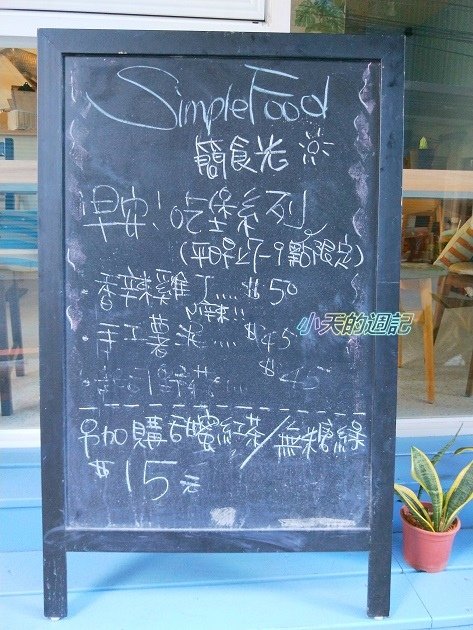 Simple Food
簡食光
早安！吃堡系列
(平日早上7-9點限定)
·香辣雞丁.... $50
小辣!!
·手工薯泥.... $45
$45
加購舌蜜紅茶/無糖綠
$15元
小天的週記